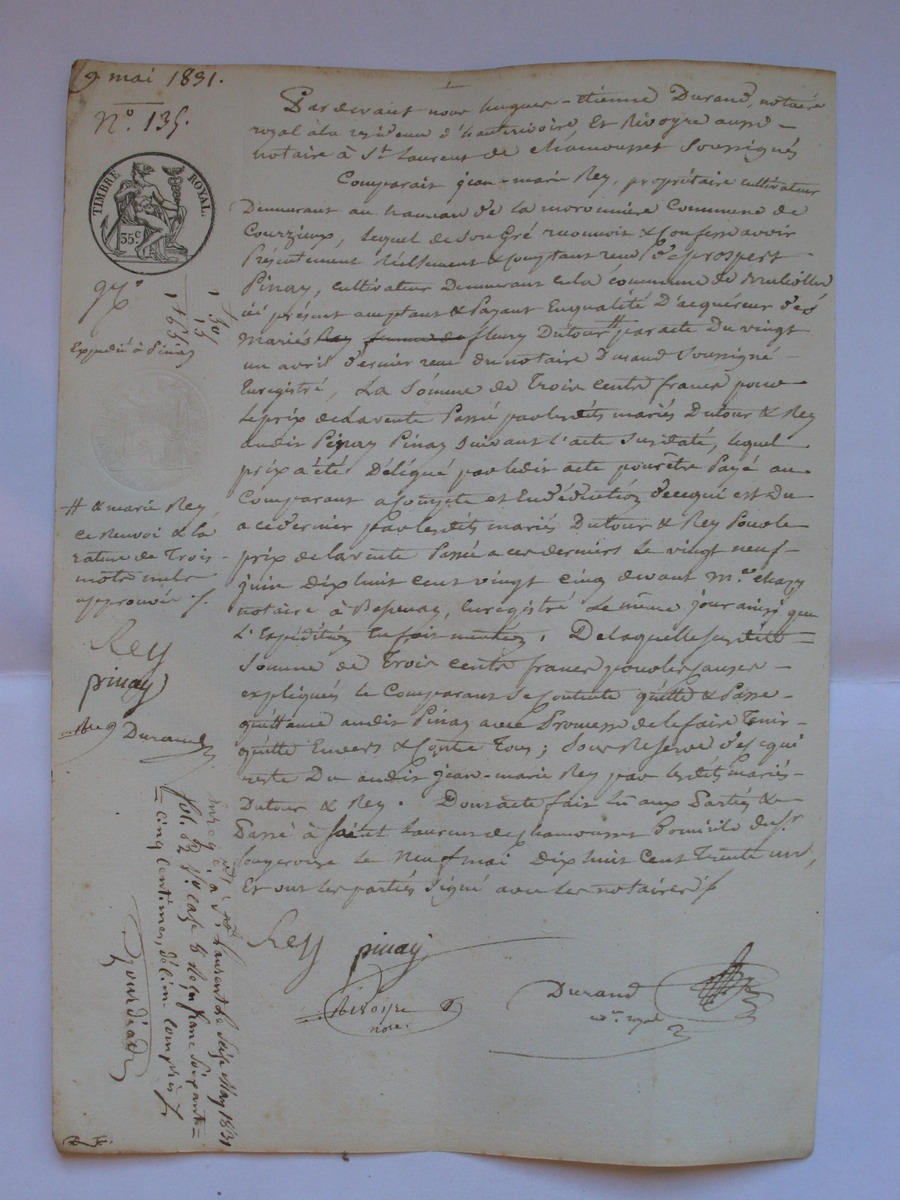 9 mai 1831.
N.° 135.
TIMBRE ROYAL.
35 c
1, 50
13
1, 65
Expédié à Pinay
# & marie Rey
ce renvoi & la
rature de Trois
mots nuls
approuvée ./.
Rey
pinay
Durand
Par devant nous hugues-Etienne Durand, notaire
royal à la résidence d'hauterivoire Et Rivoyre aussi
notaire à St. Laurent de chamousset Soussignés
Comparait jean-marie Rey, propriétaire cultivateur
Demeurant au hameau de la moronnière Commune de
Courzieux, lequel de Son Gré reconnoit & Confesse avoir
Présentement Réellement & Comptant reçu de prosper
Pinay, cultivateur Demeurant en la commune de
ici présent acceptant & Payant En qualité D'acquéreur des
mariés fleury Dutour # par acte Du vingt
un avril dernier reçu Du notaire Durand Soussigné
Enregistré, La Somme de Trois cents francs pour
le prix de la vente Passée par lesdits mariés Dutour & Rey
audit Pinay Pinay suivant l'acte Susdaté, lequel
prix a été Délégué par ledit acte pour être Payé au
Comparant a Compte et En Déduction de ce qui est Du
a ce dernier par lesdits mariés Dutour & Rey Pour le
prix de la vente Passée a ces derniers le vingt neuf
juin Dix huit cent vingt cinq devant m.e chazy
notaire à Bessenay, Enregistré le même jour ainsi que
L'Expédition En fait mention. De laquelle susdite
Somme de Trois cents francs pour les causes
expliqués le Comparant se Contente quitte & Passe
quittance audit Pinay avec Promesse de le faire Tenir
quitte Envers & Contre Tous; Sous Reserve de ce qui
reste Du audit jean-marie Rey par lesdits mariés
Dutour & Rey. Dont acte fait lu aux Parties &
Passé à Saint Laurent de Chamousset Domicile du Sr.
fougerouse le Neuf mai Dix huit Cent Trente un,
Et ont les parties Signé avec les notaires ./.
Rey pinay
Rivoyre
nore.
Durand
nre. royal
Enregistré à St. Laurent le Seize May 1831
fol. 82 Vo case 5 Reçu un franc Soixante
cinq centimes, décime compris ./.